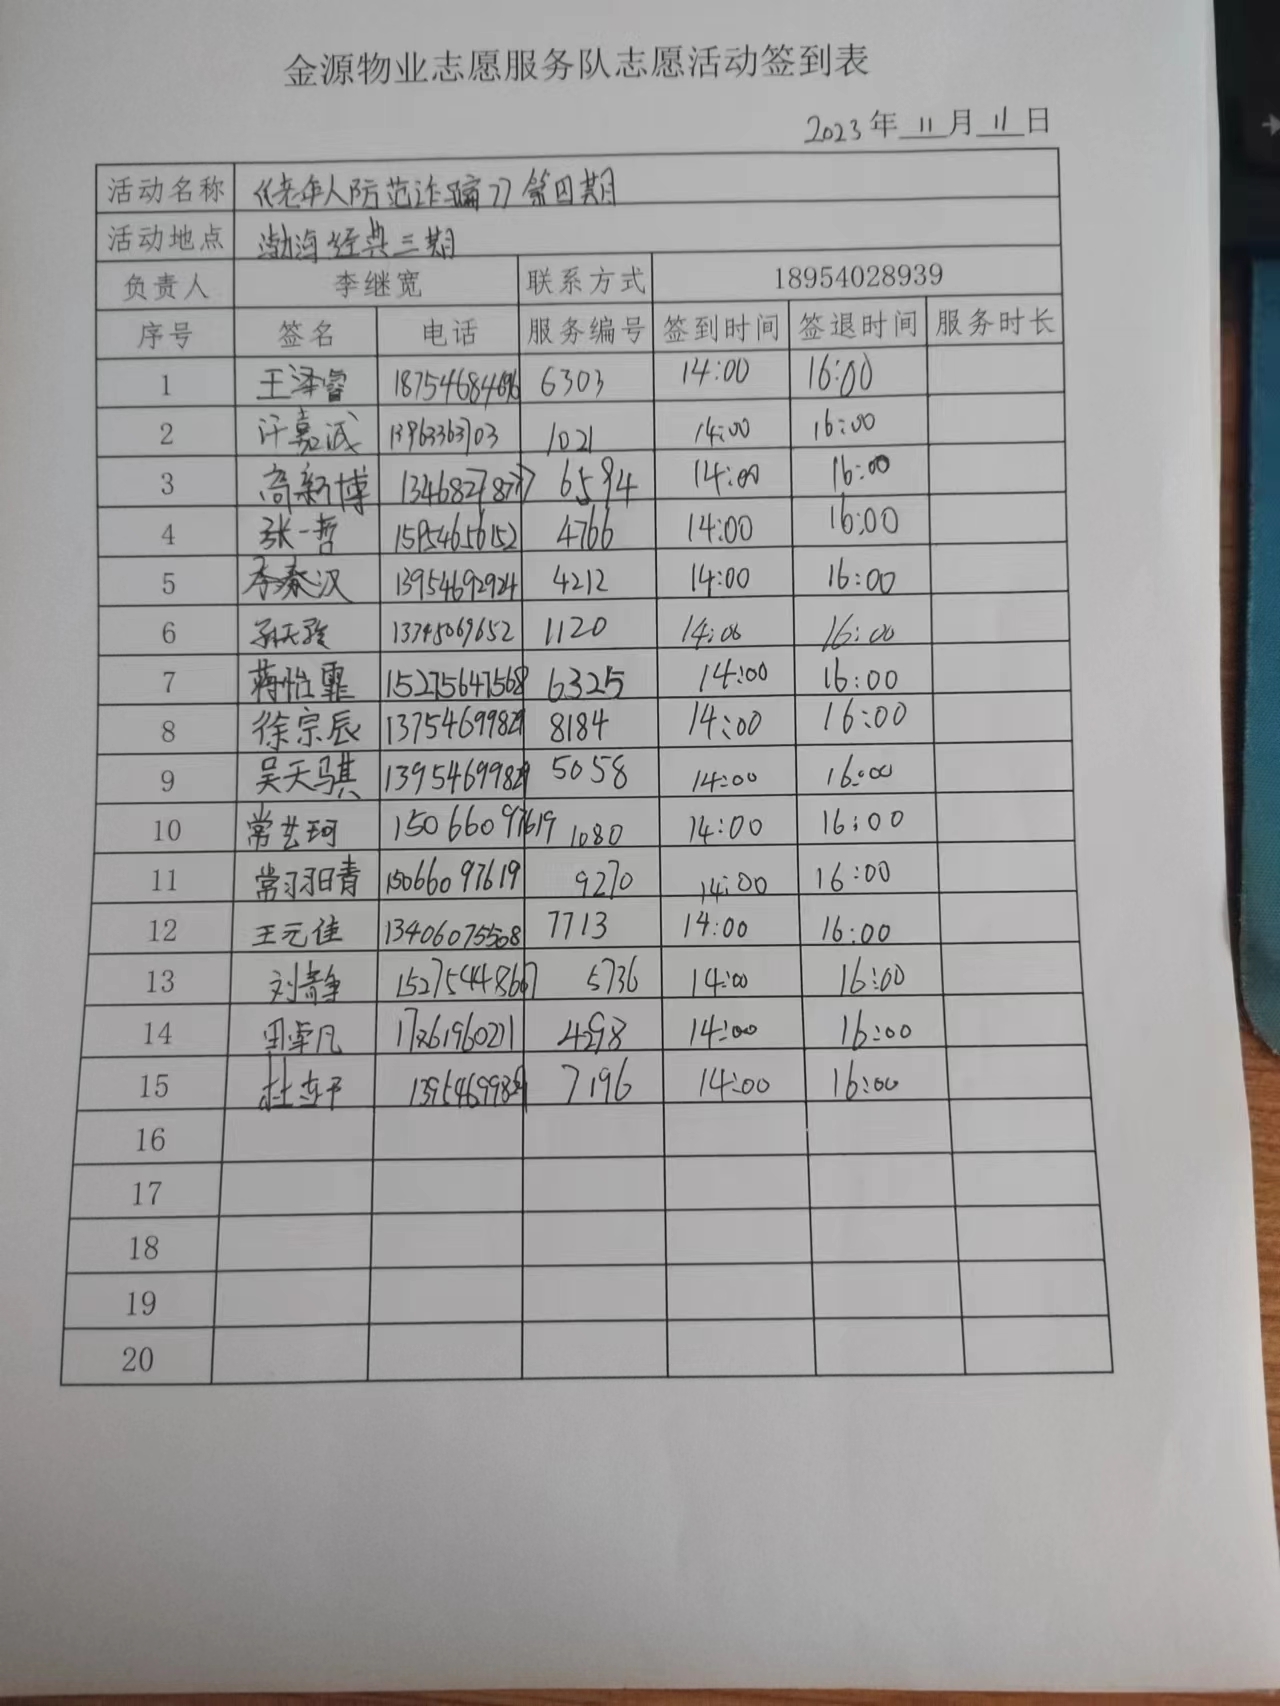 金源物业志愿服务队志愿活动签到表
2023年 11 月 11 日
活动名称 《老年人防范诈骗》第四期
活动地点 渤海经典三期
负责人 李继宽 联系方式 18954028939
序号 签名 电话 服务编号 签到时间 签退时间 服务时长
1 王泽睿 18754684696 6303 14:00 16:00
2 许嘉诚 13963363703 1021 14:00 16:00
3 高新博 13468278777 6594 14:00 16:00
4 张一哲 15954656152 4766 14:00 16:00
5 李秦汉 13954692924 4212 14:00 16:00
6 13745069652 1120 14:00 16:00
7 蒋怡霏 15275647568 6325 14:00 16:00
8 徐宗辰 13754699829 8184 14:00 16:00
9 吴天骐 13954699829 5058 14:00 16:00
10 常艺珂 15066097619 1080 14:00 16:00
11 常羽晴 15066097619 9270 14:00 16:00
12 王元佳 13406075508 7713 14:00 16:00
13 刘静 15275448667 5736 14:00 16:00
14 田卓凡 17861960271 4298 14:00 16:00
15 13954699829 7196 14:00 16:00
16
17
18
19
20